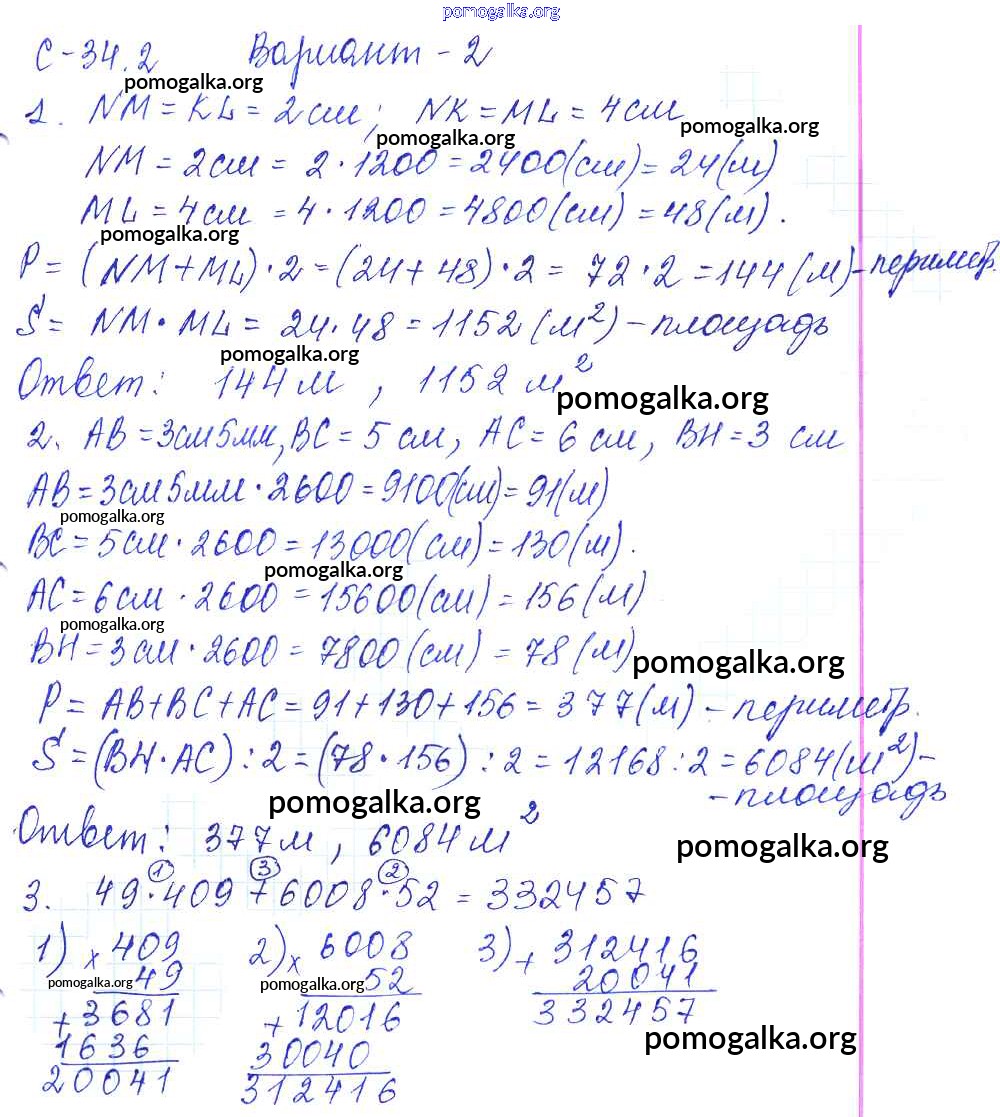 pomogalka.org
С-34.2 Вариант - 2
pomogalka.org
1. NM = KL = 2 см; NK = ML = 4 см
pomogalka.org pomogalka.org
NM = 2 см = 2 · 1200 = 2400 (см) = 24 (м)
ML = 4 см = 4 · 1200 = 4800 (см) = 48 (м).
pomogalka.org
P = (NM + ML) · 2 = (24 + 48) · 2 = 72 · 2 = 144 (м) - периметр.
S = NM · ML = 24 · 48 = 1152 (м²) - площадь
pomogalka.org
Ответ: 144 м, 1152 м²
pomogalka.org
2. AB = 3см 5мм, BC = 5 см, AC = 6 см, BH = 3 см
AB = 3см 5мм · 2600 = 9100 (см) = 91 (м)
pomogalka.org
BC = 5 см · 2600 = 13000 (см) = 130 (м).
pomogalka.org
AC = 6 см · 2600 = 15600 (см) = 156 (м)
pomogalka.org
BH = 3 см · 2600 = 7800 (см) = 78 (м)
pomogalka.org
P = AB + BC + AC = 91 + 130 + 156 = 377 (м) - периметр.
S = (BH · AC) : 2 = (78 · 156) : 2 = 12168 : 2 = 6084 (м²) -
- площадь
pomogalka.org
Ответ: 377 м, 6084 м²
pomogalka.org
1 3 2
3. 49 · 409 + 6008 · 52 = 332457
1) × 409 2) × 6008 3) + 312416
pomogalka.org 49 pomogalka.org 52 20041
+ 3681 + 12016 332457
pomogalka.org
1636 30040
20041 312416